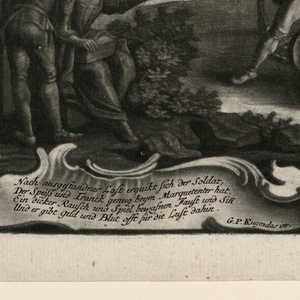 Nach ausgestandner Last erquikt sich der Soldat,
Der Speiß und Tranck genug beym Marquetenter hat,
Ein dicker Rausch und Spiel bewafnen Faust und
Und er gibt geld und Blut offt für die Lust dahin.
G. P. Rugendas